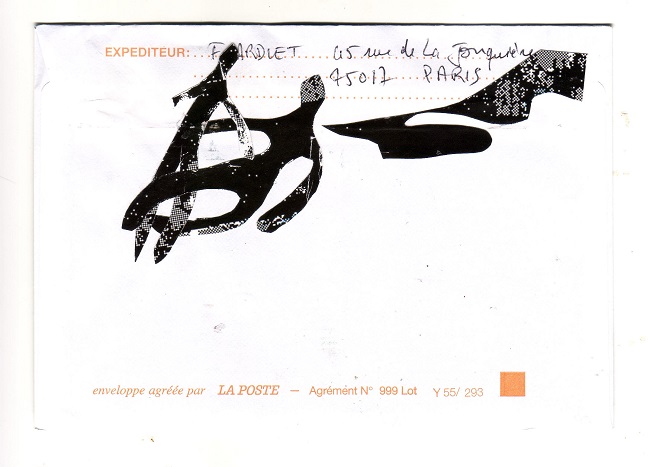 EXPEDITEUR: F ARDLET 45 rue de La Jonquière
75017 PARIS
enveloppe agréée par LA POSTE — Agrément N° 999 Lot Y 55/ 293